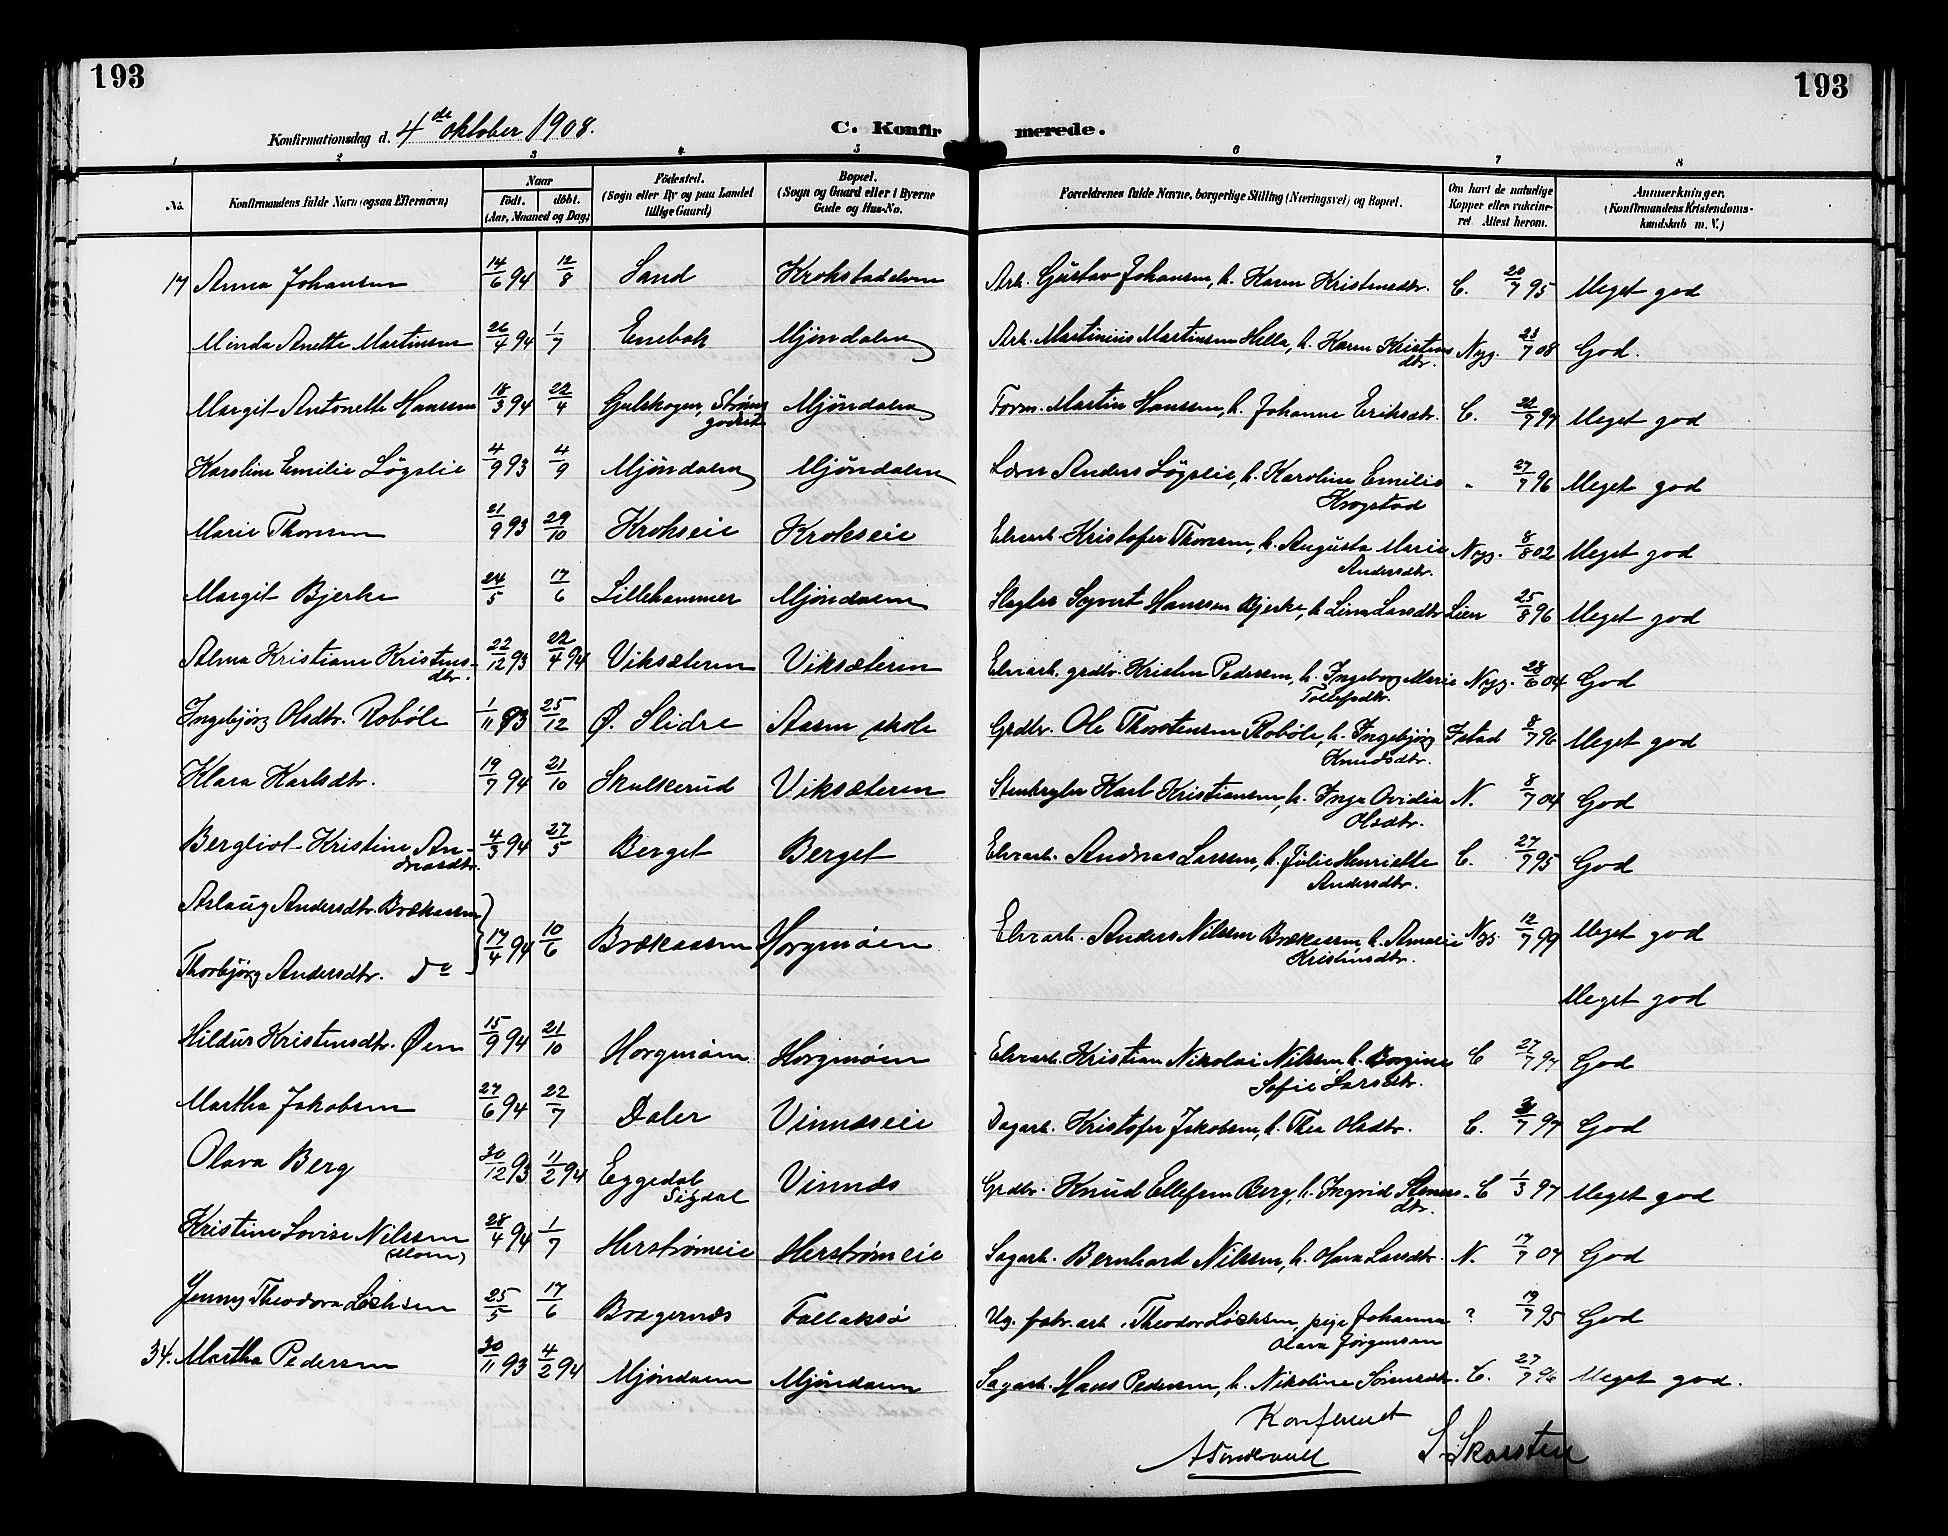 193
193
Konfirmationsdag d. 4de oktober 1908.
C. Konfirmerede.
1 2 3 4 5 6 7 8
No.
Konfirmandens fulde Navn (ogsaa Efternavn)
Naar
født. døbt.
(Aar, Maaned og Dag)
Fødested.
(Sogn eller By og paa Landet
tillige Gaard)
Bopæl.
(Sogn og Gaard eller i Byerne
Gade og Hus-No.
Forældrenes fulde Navne, borgerlige Stilling (Næringsvei) og Bopæl.
Om havt de naturlige
Kopper eller vakcine-
ret. Attest herom.
Anmerkninger.
(Konfirmandens Kristendoms-
kundskab m. V.)
17 Anna Johansen 14/6 94 12/8 Sand Krokstadelven Arb. Gustav Johansen, h. Karen Kristensdtr. C. 20/7 95 Meget god
Minda Anette Martinsen 26/4 94 1/7 Enebak Mjøndalen Arb. Martinius Martinsen Hella, h. Karen Kristens
dtr. Nyg. 23/7 08 God.
Margit Antonette Hanssen 18/3 94 22/4 Gulskogen, Strøms
godset Mjøndalen Form. Martin Hanssen, h. Johanne Eriksdtr. C. 22/7 97 Meget god
Karoline Emilie Løgslie 4/9 93 4/9 Mjøndalen Mjøndalen Anders Løgslie, h. Karoline Emilie
Krogstad " 27/7 96 Meget god
Marie Thoresen 21/9 93 29/10 Krokseie Krokseie Elvearb. Kristofer Thoresen, h. Augusta Marie
Andersdtr. Nyg. 8/8 02 Meget god
Margit Bjerke 24/5 17/6 Lillehammer Mjøndalen Slagter Syvert Hanssen Bjerke, h. Lina Larsdtr Lien 25/8 96 Meget god
Alma Kristiane Kristens-
dtr. 22/12 93 22/4 94 Viksæteren Viksæteren Elvearb. grdbr. Kristen Pedersen, h. Ingeborg Marie
Tollefsdtr. Nyg. 28/6 04 God
Ingebjørg Olsdtr. Robøle 1/11 93 25/12 Ø. Slidre Aasen skole Grdbr. Ole Thorstensen Robøle, h. Ingebjørg
Knudsdtr. Istad 8/7 96 Meget god
Klara Karlsdtr. 19/7 94 21/10 Skulkerud Viksæteren Stenbryter Karl Kristiansen, h. Inga Ovidia
Olsdtr. N. 8/7 04 God
Bergliot Kristine An-
dreasdtr. 4/3 94 27/5 Berget Berget Elvearb. Andreas Larssen, h. Julie Henriette
Andersdtr. C. 27/7 95 God
Aslaug Andersdtr. Brækaasen 17/4 94 10/6 Brækaasen Horgmøen Elvearb. Anders Nilssen Brækaasen, h. Amalie
Kristensdtr. Nyg. 12/7 99 Meget god
Thorbjørg Andersdtr. do Meget god
Hildur Kristensdtr. Øen 15/9 94 21/10 Horgmøen Horgmøen Elvearb. Kristian Nikolai Nilssen, h. Borgine
Sofie Larsdtr. C 27/7 97 God
Martha Jakobsen 27/6 94 22/7 Daler Vinnæseie Dagarb. Kristofer Jakobsen, h. Thea Olsdtr. C. 7 97 God
Olava Berg 30/12 93 11/2 94 Eggedal
Sigdal Vinnæs Grdbr. Knud Ellefsen Berg, h. Ingrid Steners
dtr. C 1/3 97 Meget god
Kristine Lovise Nilssen 28/4 94 1/7 Herstrømeie Herstrømeie Sagarb. Bernhard Nilssen, h. Olava Larsdtr. N. 17/7 07 God
Jenny Theodora Løchsen 25/5 17/6 Bragernæs Fallaksø Ug. fabr. arb. Theodor Løchsen, pige Johanna
Olava Jørgensen ? 19/7 95 God
34. Martha Pedersen 30/11 93 4/2 94 Mjøndalen Mjøndalen Sagarb. Hans Pedersen, h. Nikoline Sørensdtr. C. 27/7 96 Meget god.
Konfereret
S. Skarsten